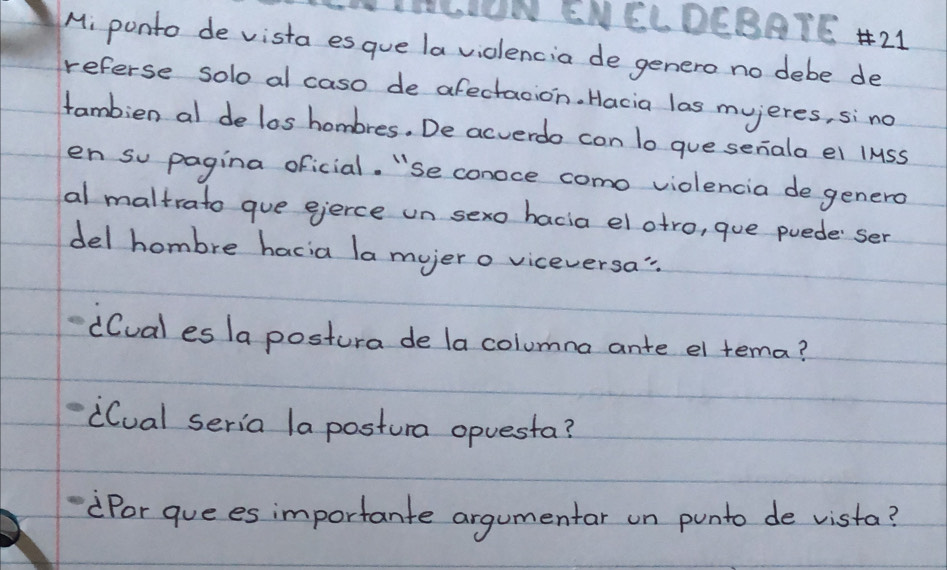 EN EL DEBATE #21
Mi punto de vista es que la violencia de genero no debe de
referse solo al caso de afectación. Hacia las mujeres, si no
tambien al de los hombres. De acuerdo con lo que señala el IMSS
en su pagina oficial. "Se conoce como violencia de genero
al maltrato que ejerce un sexo hacia el otro, que puede ser
del hombre hacia la mujer o viceversa".
-¿Cual es la postura de la columna ante el tema?
-¿Cual sería la postura opuesta?
-¿Por que es importante argumentar un punto de vista?